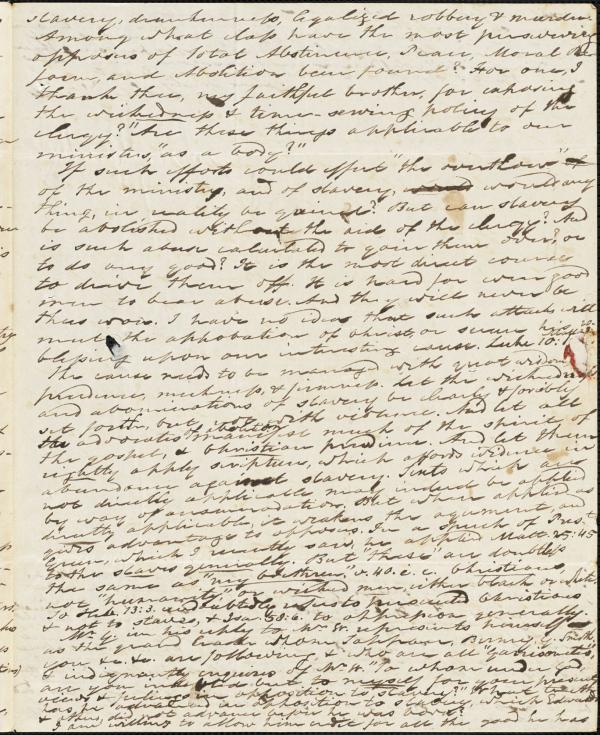 slavery, drunkenness, legalized robbery & murder.
Among what class have the most persevering
opposers of Total Abstinence, Peace, Moral Re
form, and Abolition been found? For one, I
thank thee, my faithful brother, for exposing
the wickedness & time-serving policy of the
clergy?" Are these things applicable to our
ministers, "as a body?"
If such efforts could effect "the overthrow"
of the ministry, and of slavery, would any
thing, in reality be gained? But can slavery
be abolished without the aid of the clergy? And
is such abuse calculated to gain them over, or
to do any good? It is the most direct course
to drive them off. It is hard for even good
men to bear abuse. And they will never be
thus won. I have no idea that such attack will
meet the approbation of Christ, or secure his
blessing upon our interest & cause. Luke 10:16
The cause needs to be managed with great wisdom,
prudence, meekness, & firmness. Let the wickedness
and abominations of slavery be clearly & forcibly
set forth, but not with violence. And let all
the advocates of abolition manifest much of the spirit of
the gospel, & Christian prudence. And let them
rightly apply scripture, which affords evidence in
abundance against slavery. Texts which are
not directly applicable may indeed be applied
by way of accommodation. But when applied as
directly applicable, it weakens the argument, and
gives advantage to opposers. In a speech of Pres.
Green, which I recently saw, he applied Matt. 25:45
to the slaves generally. But "these" are doubtless
the same as "my brethren," v. 40. i.e. Christians,
not "humanity," or wicked men, either black or white.
So Heb. 13:3. undoubtedly refers to persecuted Christians
& not to slaves, & Isa. 58:6. to oppression generally.
Mr. G. in his reply to Mr. W. represents himself
as the grand
you &c. &c. are following & who are all "Garrisonites"
& indignantly inquires of Mr. W. "To whom under God
are you indebted but to myself for your present
views & in opposition to slavery?" What truth
has he advanced in opposition to slavery, which Edwards
& others did not advance before he was born?
I am willing to allow him credit for all the good he has